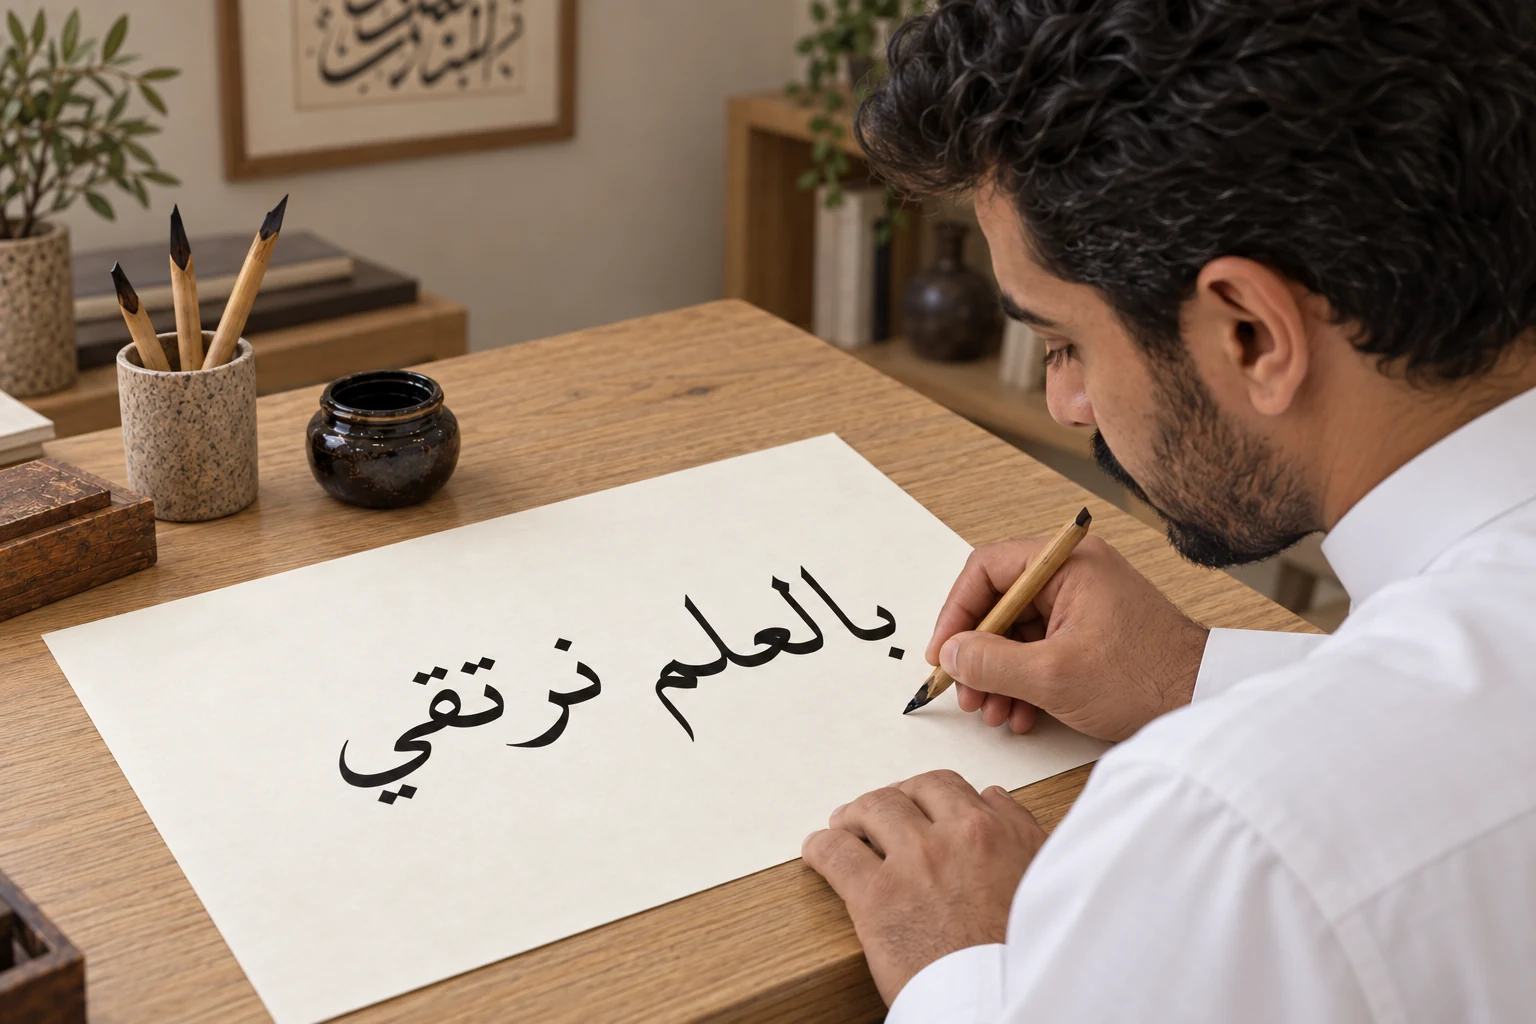 بالعلم نرتقي